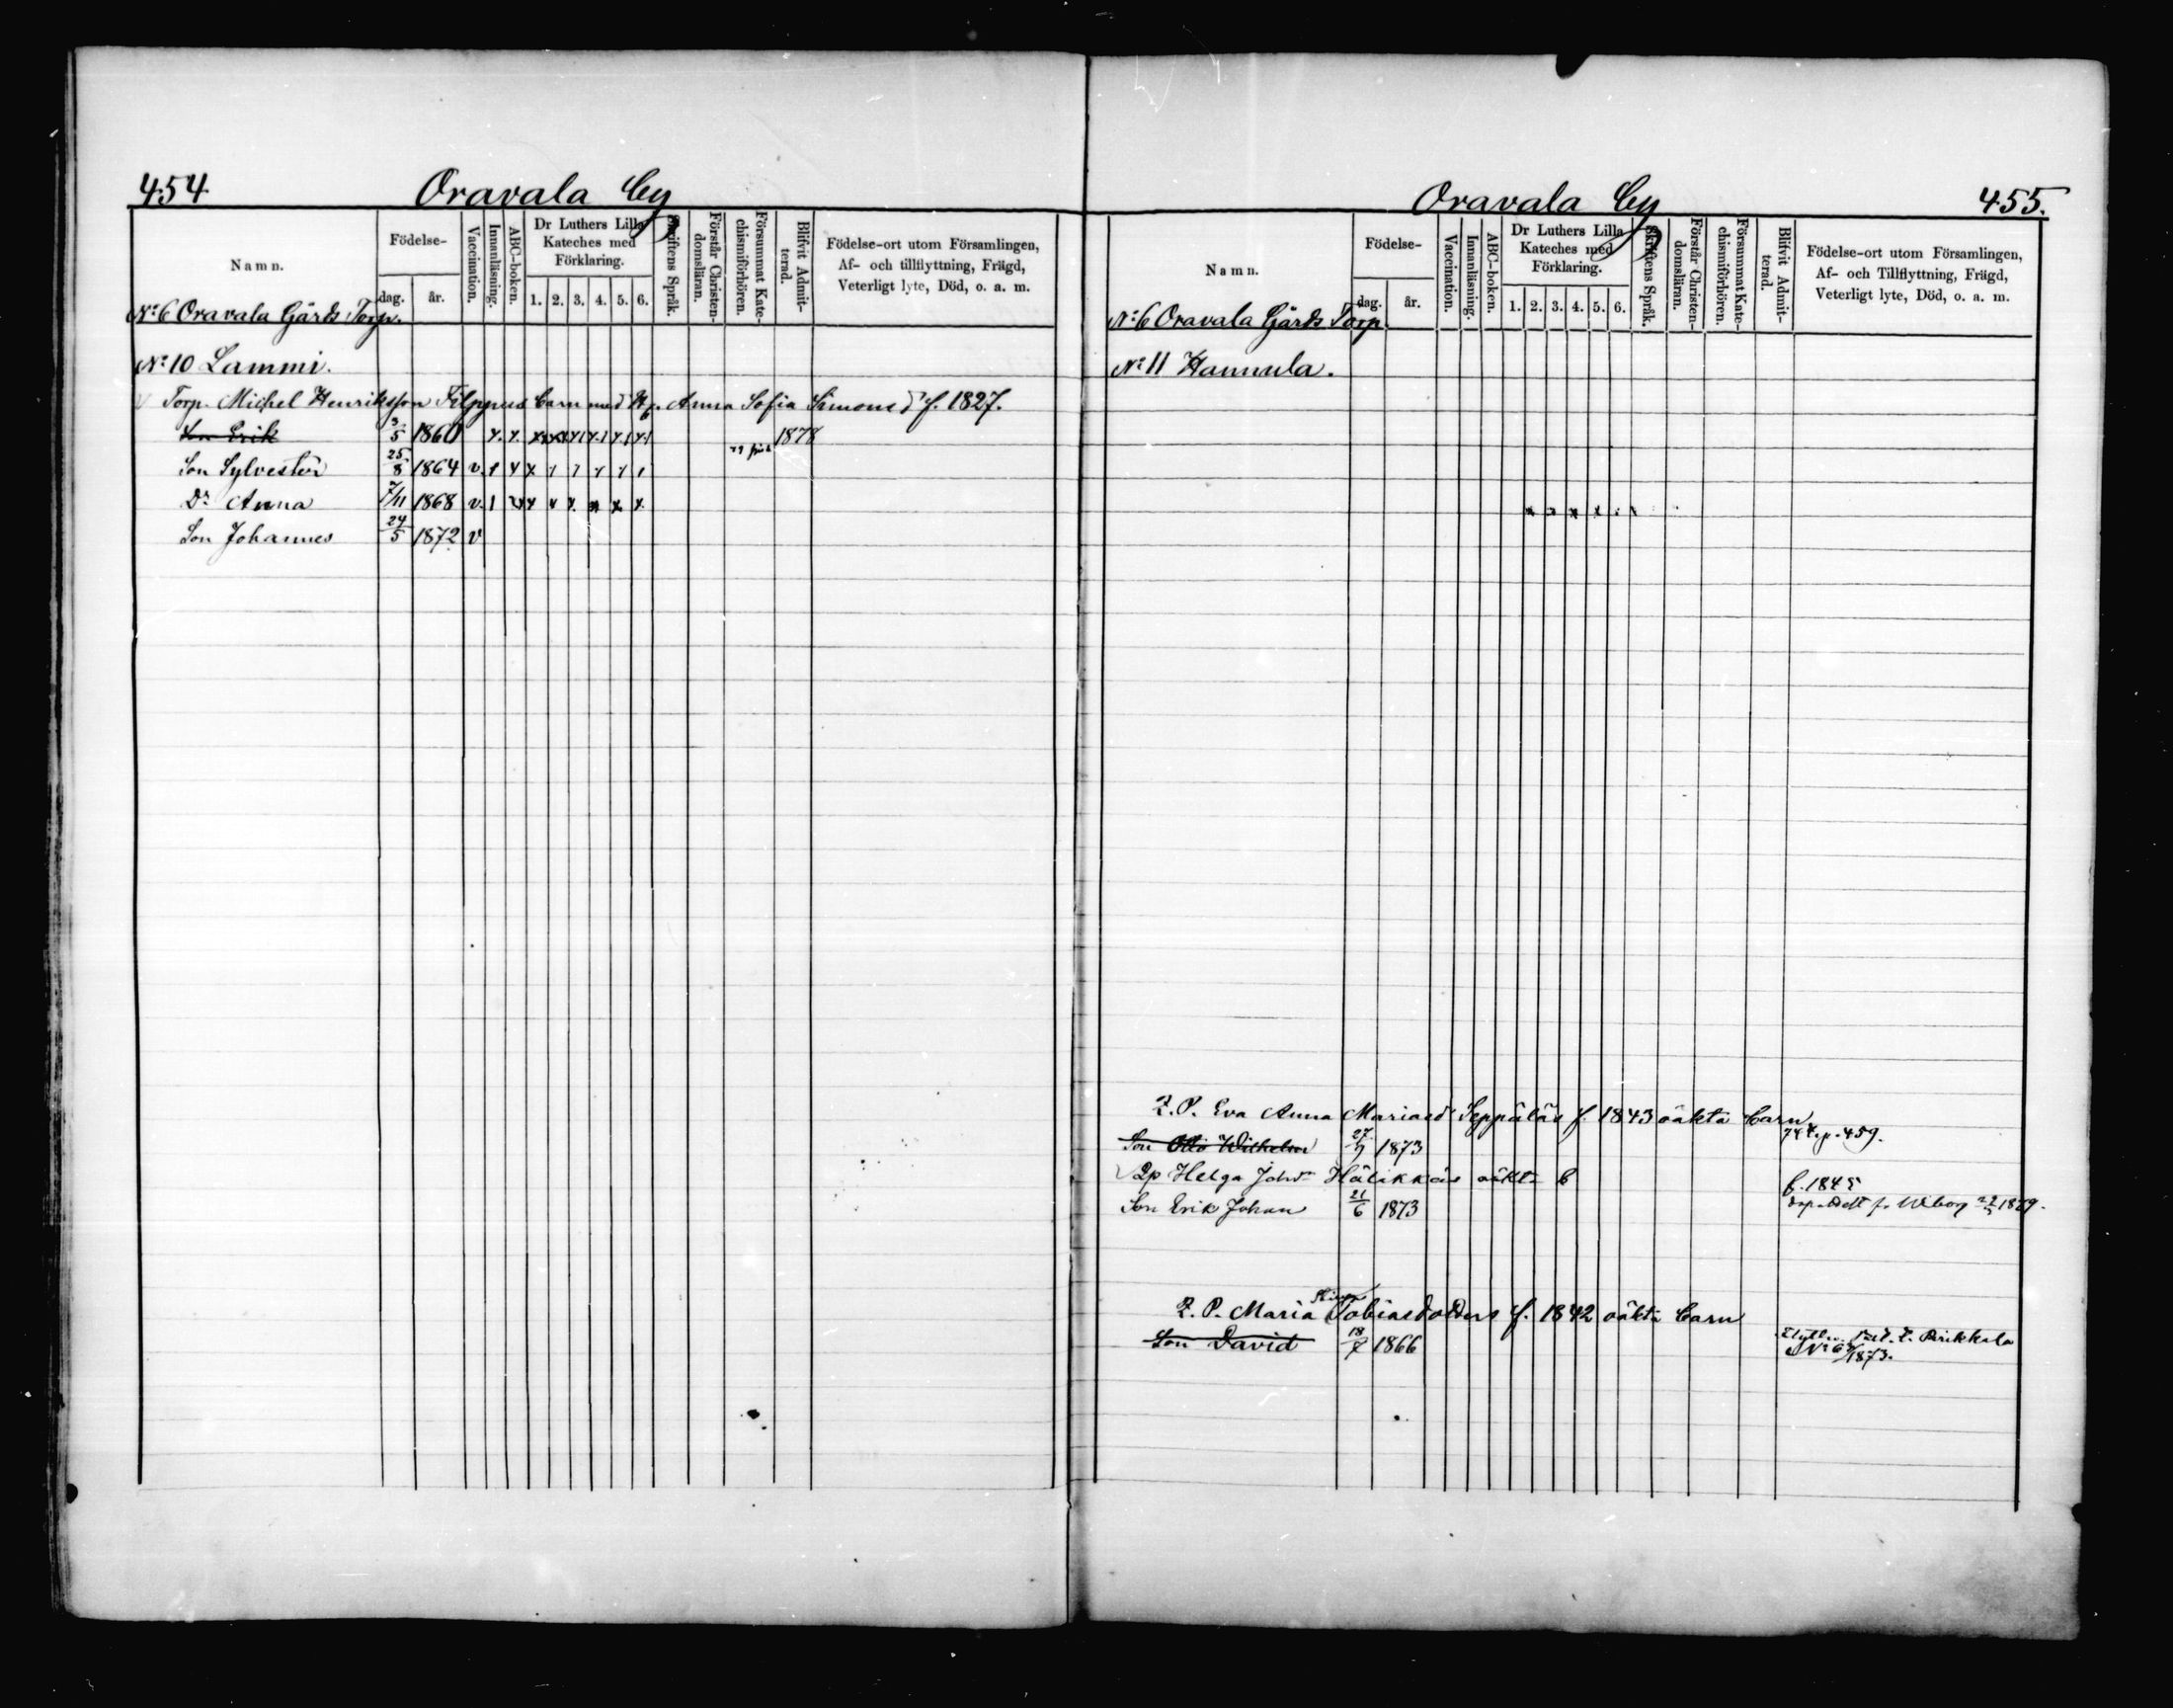 454. Oravala By
Namn.
Födelse-
dag. år.
Vaccination.
Innanläsning.
ABC-boken.
Dr Luthers Lilla Kateches med Förklaring.
1. 2. 3. 4. 5. 6.
Skriftens Språk.
Förstår Christendomsläran.
Försummat Katechismiförhören.
Blifvit Admitterad.
Födelse-ort utom Församlingen,
Af- och tillflyttning, Frägd,
Veterligt lyte, Död, o. a. m.
No 6 Oravala Gårds Torp.
No 10 Lammi.
Torp. Michel Henriksson Filppus barn med H. Anna Sofia Simonsd f. 1827.
Son Erik 3/5 1860 1878
Son Sylvester 25/8 1864 v.
Dr Anna 7/11 1868 v.
Son Johannes 24/5 1872 v
Oravala By 455.
Namn.
Födelse-
dag. år.
Vaccination.
Innanläsning.
ABC-boken.
Dr Luthers Lilla Kateches med Förklaring.
1. 2. 3. 4. 5. 6.
Skriftens Språk.
Förstår Christendomsläran.
Försummat Katechismiförhören.
Blifvit Admitterad.
Födelse-ort utom Församlingen,
Af- och Tillflyttning, Frägd,
Veterligt lyte, Död, o. a. m.
No 6 Oravala Gårds Torp.
No 11 Hannula.
Q. P. Eva Anna Mariasd Seppäläs f. 1843 oäkta barn
Son Otto Wilhelm 27 1873 p. 459.
Qp Helga Johdr Hälikkäs oäkt b f. 1845
Son Erik Johan 21/6 1873 Wiborg 1879.
Q. P. Maria Tobiasdotters f. 1842 oäkta barn
Son David 18 1866 Pirkkala
1873.